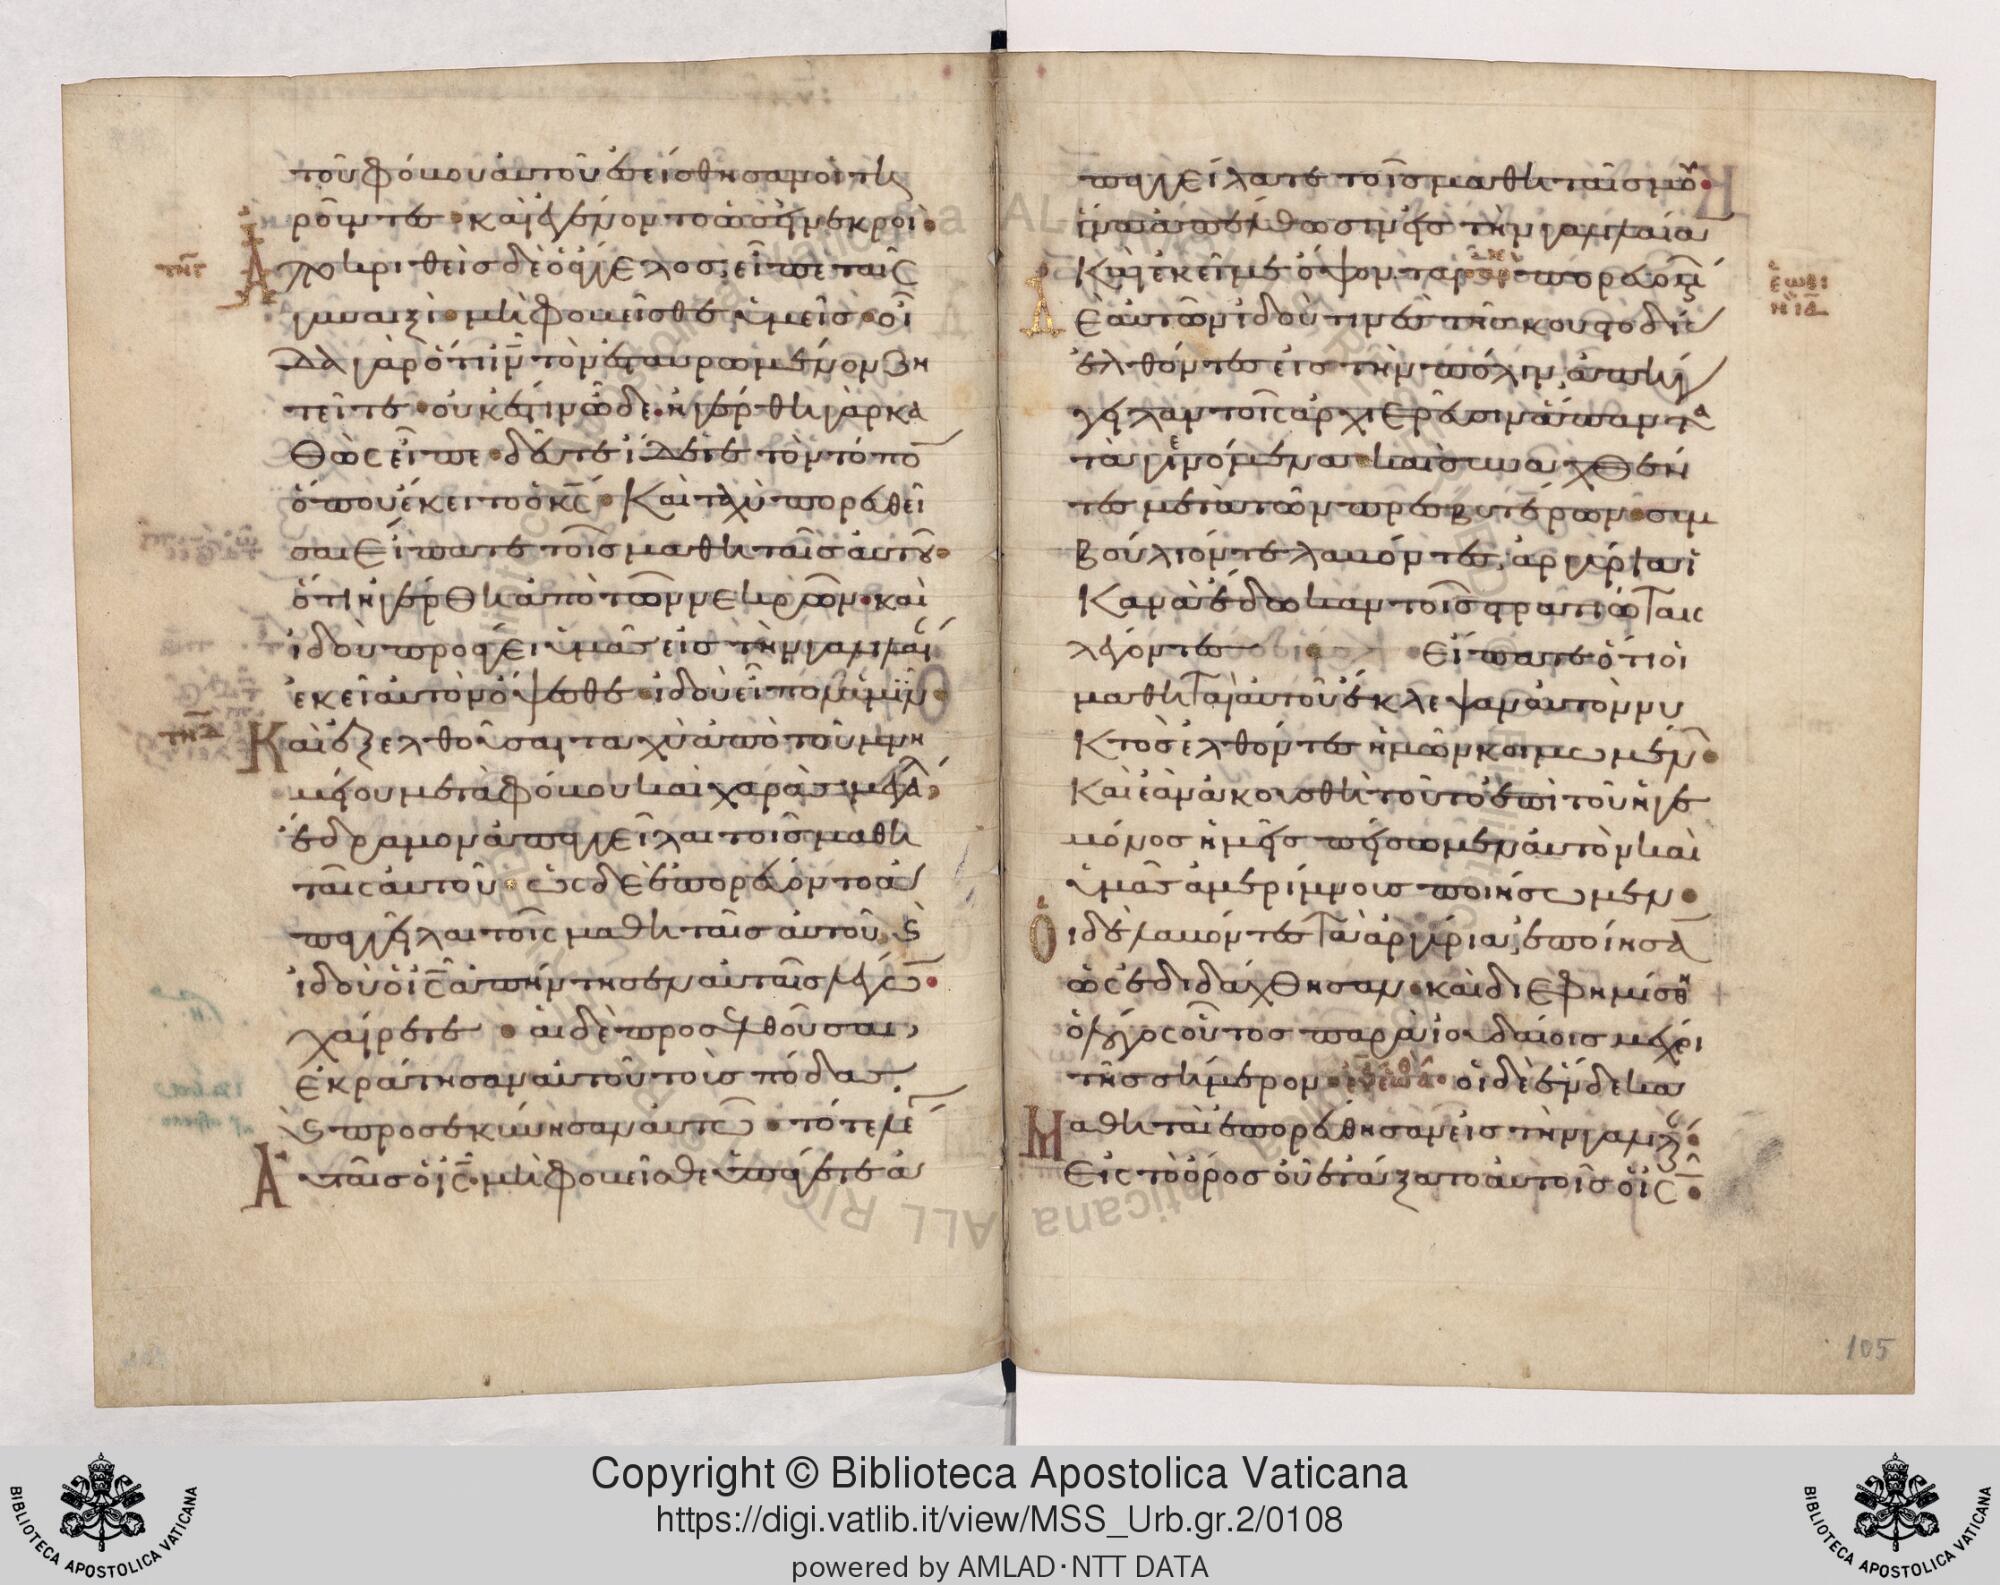 τοῦ φόβου αὐτοῦ ἐσείσθησαν οἱ τη
ροῦντες · καὶ ἐγένοντο ὡσεὶ νεκροί ·
Ἀποκριθεὶς δὲ ὁ ἄγγελος, εἶπε ταῖς
γυναιξί · μὴ φοβεῖσθε ὑμεῖς · οἶ
δα γὰρ ὅτι ἰν τὸν ἐσταυρωμένον ζη
τεῖτε · οὐκ ἔστιν ὧδε · ἠγέρθη γὰρ κα
θὼς εἶπε · δεῦτε ἴδετε τὸν τόπο
ὅπου ἔκειτο ὁ κς · Καὶ ταχὺ πορευθεῖ
σαι εἴπατε τοῖς μαθηταῖς αὐτοῦ ·
ὅτι ἠγέρθη ἀπὸ τῶν νεκρῶν · καὶ
ἰδοὺ προάγει ὑμᾶς εἰς τὴν γαλιλαί
ἐκεῖ αὐτὸν ὄψεσθε · ἰδοὺ εἶπον ὑμῖν ·
τῆ δ Καὶ ἐξελθοῦσαι ταχὺ ἀπὸ τοῦ μνη
μείου μετὰ φόβου καὶ χαρᾶς μεγάλ
ἔδραμον ἀπαγγεῖλαι τοῖς μαθη
ταῖς αὐτοῦ · ὡς δὲ ἐπορεύοντο ἀ
παγγεῖλαι τοῖς μαθηταῖς αὐτοῦ, καὶ
ἰδοὺ ὁ ις ἀπήντησεν αὐταῖς λέγω ·
χαίρετε · αἱ δὲ προσελθοῦσαι,
ἐκράτησαν αὐτοῦ τοὺς πόδας ·
καὶ προσεκύνησαν αὐτῶ · τότε λέγ
Αὐταῖς ὁ ις · μὴ φοβεῖσθε ὑπάγετε ἀ
παγγείλατε τοῖς μαθηταῖς μου ·
ἵνα ἀπέλθωσιν εἰς τὴν γαλιλαία
Κἀκεῖ με ὄψονται · πορευομ
έ αυτῶν ἰδού τινες τῆς κουστωδίας
ἐλθόντες εἰς τὴν πόλιν, ἀπήγ
γειλαν τοῖς ἀρχιερεῦσιν ἅπαντα
τὰ γενόμενα · καὶ συναχθέν
τες μετὰ τῶν πρεσβυτέρων · συμ
βούλιόν τε λαβόντες, ἀργύρια ἱ
κανὰ ἔδωκαν τοῖς στρατιώταις
λέγοντες · εἴπατε ὅτι οἱ
μαθηταὶ αὐτοῦ ἔκλεψαν αὐτὸν νυ
κτὸς ἐλθόντες ἡμῶν κοιμωμέν ·
Καὶ ἐὰν ἀκουσθῆ τοῦτο ἐπὶ τοῦ ἡγε
μόνος ἡμεῖς πείσομεν αὐτὸν καὶ
ὑμᾶς ἀμερίμνους ποιήσωμεν ·
Οἱ δὲ λαβόντες τὰ ἀργύρια, ἐποίησα
ὡς ἐδιδάχθησαν · καὶ διεφημίσθη
ὁ λόγος οὗτος παρὰ ἰουδαίοις μέχρι
τῆς σήμερον · οἱ δὲ ἕνδεκα
Μαθηταὶ ἐπορεύθησαν εἰς τὴν γαλιλ
εἰς τὸ ὄρος οὗ ἐτάξατο αὐτοῖς ὁ ις ·
105
Copyright © Biblioteca Apostolica Vaticana
https://digi.vatlib.it/view/MSS_Urb.gr.2/0108
powered by AMLAD·NTT DATA
BIBLIOTECA APOSTOLICA VATICANA
BIBLIOTECA APOSTOLICA VATICANA